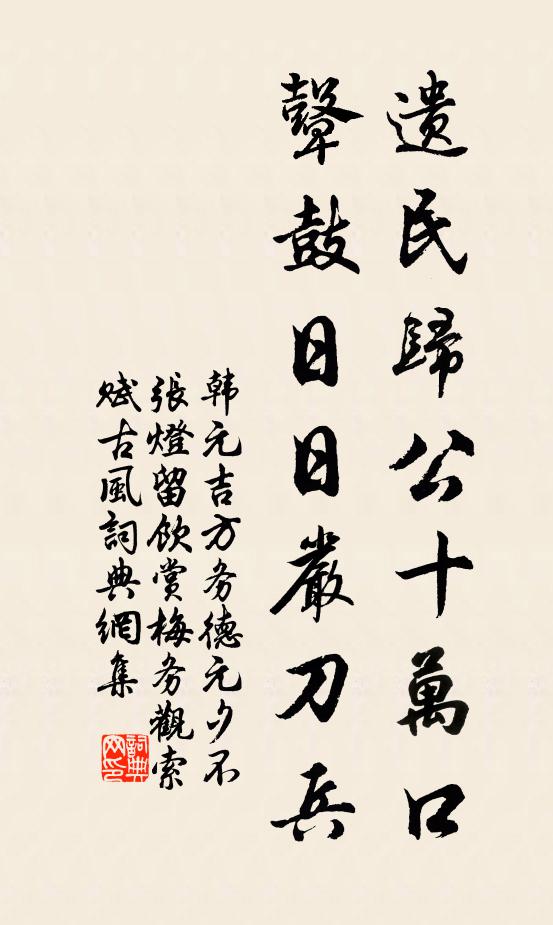 遗民歸公十萬口
鼙鼓日日嚴刀兵
韩元吉方务德元夕不
張燈留飲赏梅务觀索
赋古風詞典網集
詞典網印